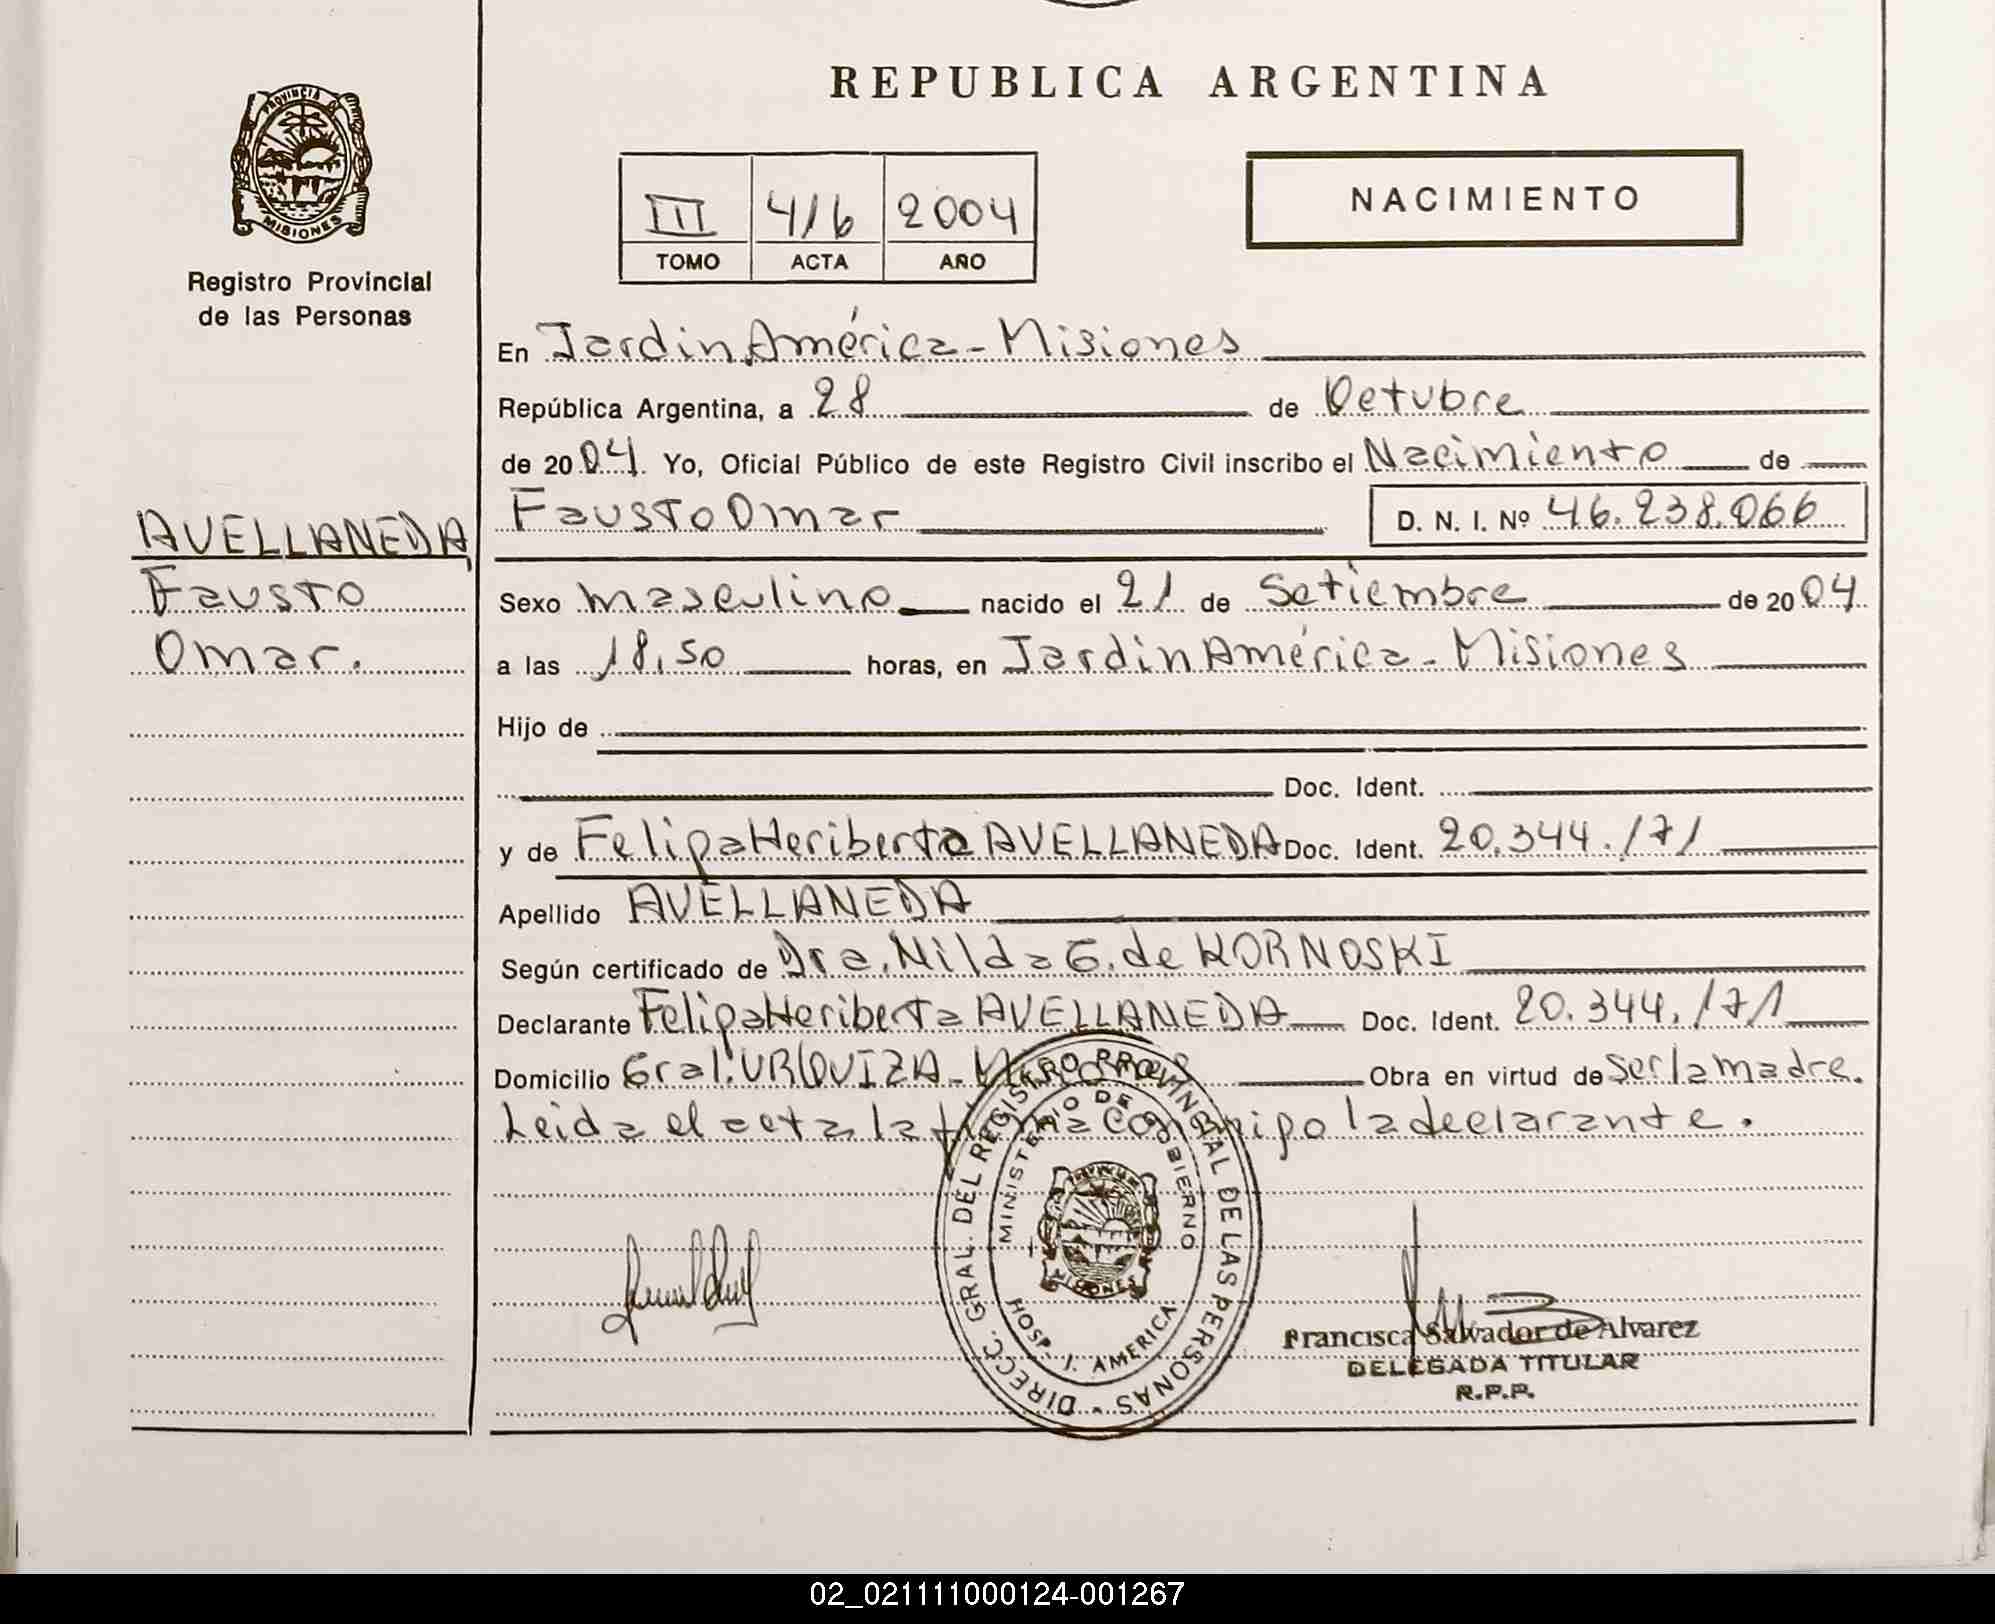 REPUBLICA ARGENTINA
PROVINCIA DE
MISIONES
Registro Provincial
de las Personas
III 416 2004
TOMO ACTA AÑO
NACIMIENTO
En Jardin América - Misiones
República Argentina, a 28 de Octubre
de 2004. Yo, Oficial Público de este Registro Civil inscribo el Nacimiento de
Fausto Omar D. N. I. Nº 46.238.066
AVELLANEDA
Fausto
Omar.
Sexo masculino nacido el 21 de Setiembre de 2004
a las 18,50 horas, en Jardin América - Misiones
Hijo de
Doc. Ident.
y de Felipa Heriberta AVELLANEDA Doc. Ident. 20.344.171
Apellido AVELLANEDA
Según certificado de Dra. Nilda G. de KORNOSKI
Declarante Felipa Heriberta AVELLANEDA Doc. Ident. 20.344.171
Domicilio Gral. URQUIZA - Obra en virtud de ser la madre.
Leida el acta la firma conmigo la declarante.
DIRECC. GRAL. DEL REGISTRO PROVINCIAL DE LAS PERSONAS -
MINISTERIO DE GOBIERNO
MISIONES
HOSP. J. AMERICA
Francisca Salvador de Alvarez
DELEGADA TITULAR
R.P.P.
02_021111000124-001267